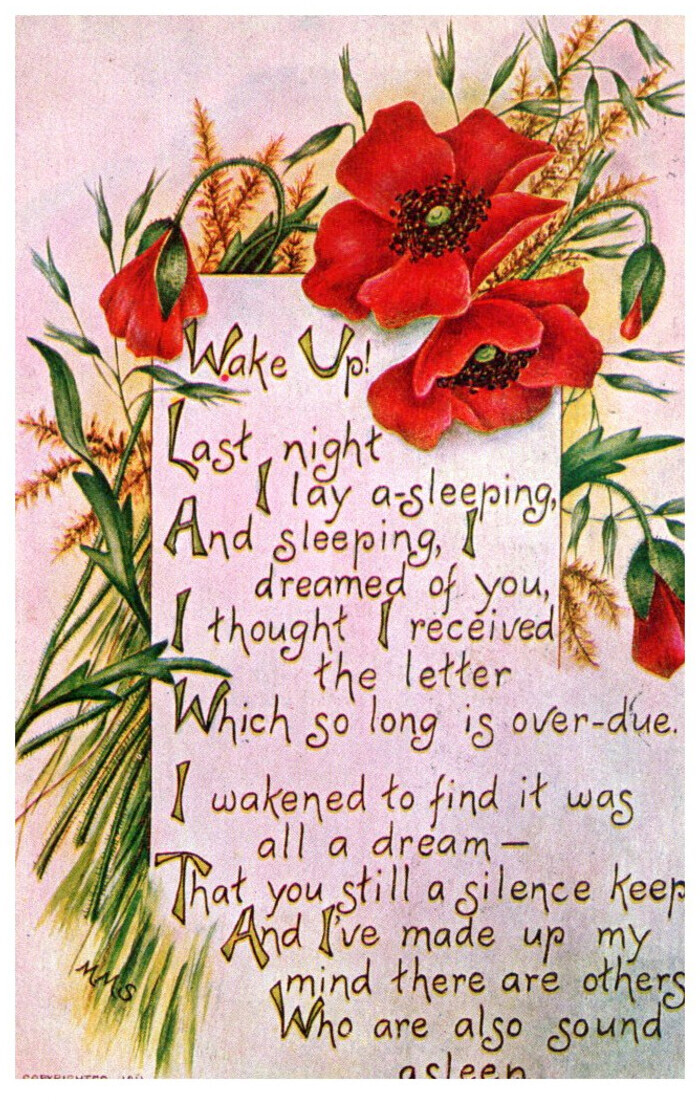 Wake Up!
Last night
I lay a-sleeping,
And sleeping, I
dreamed of you,
I thought I received
the letter
Which so long is over-due.
I wakened to find it was
all a dream —
That you still a silence keep
And I've made up my
mind there are others
Who are also sound
asleep
MMS
COPYRIGHTED